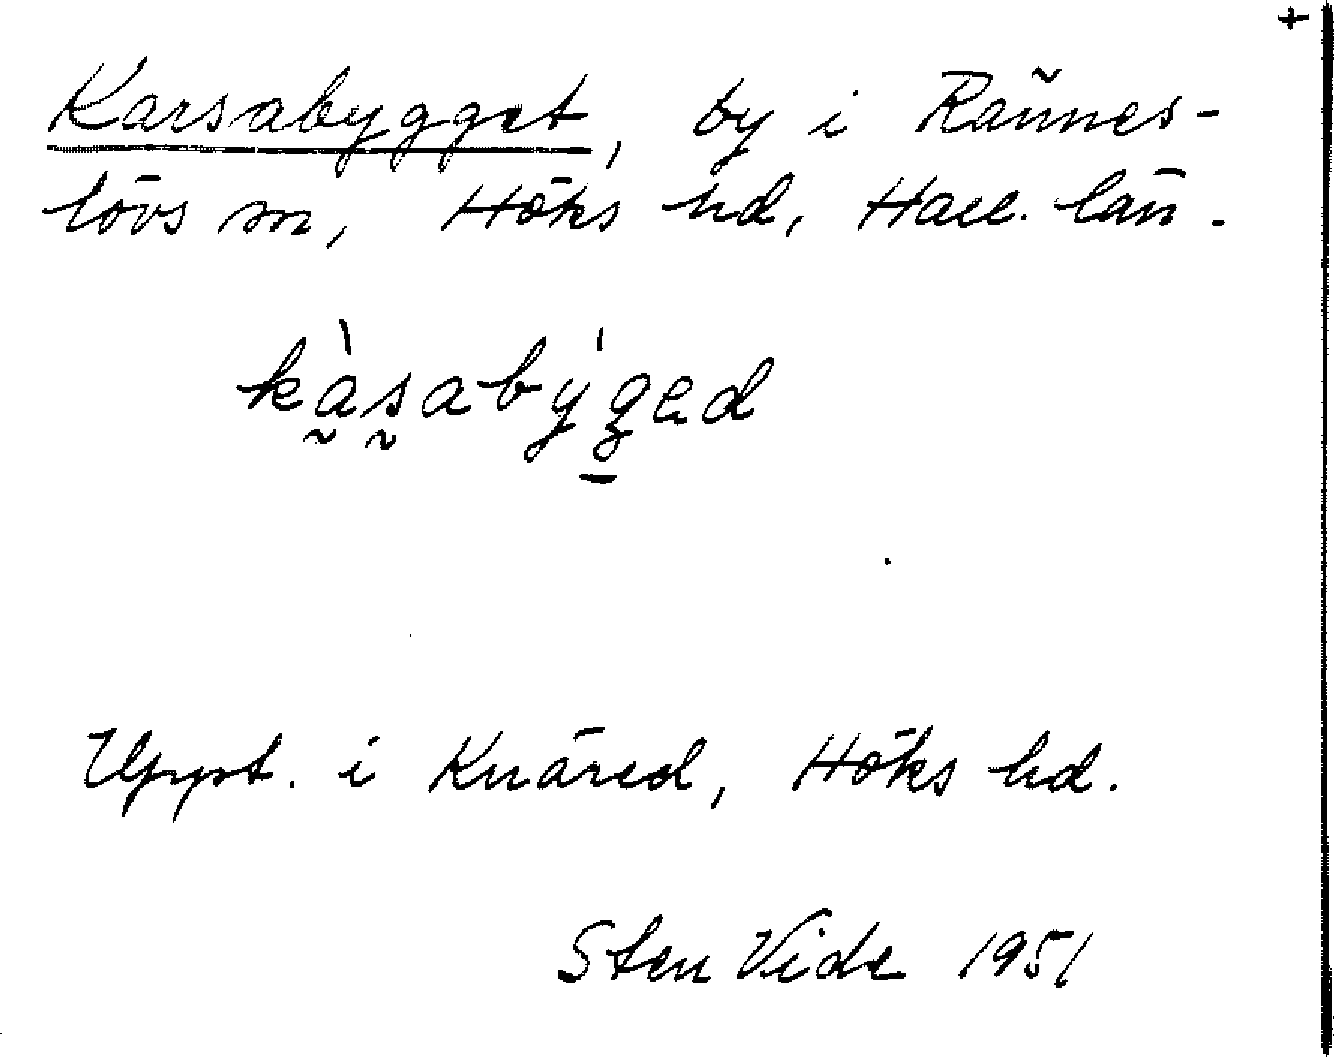 +
Karsabygget, by i Rännes-
lövs sn, Höks hd, Hall. län.
kàsabýged
Uppt. i Knäred, Höks hd.
Sten Vide 1951